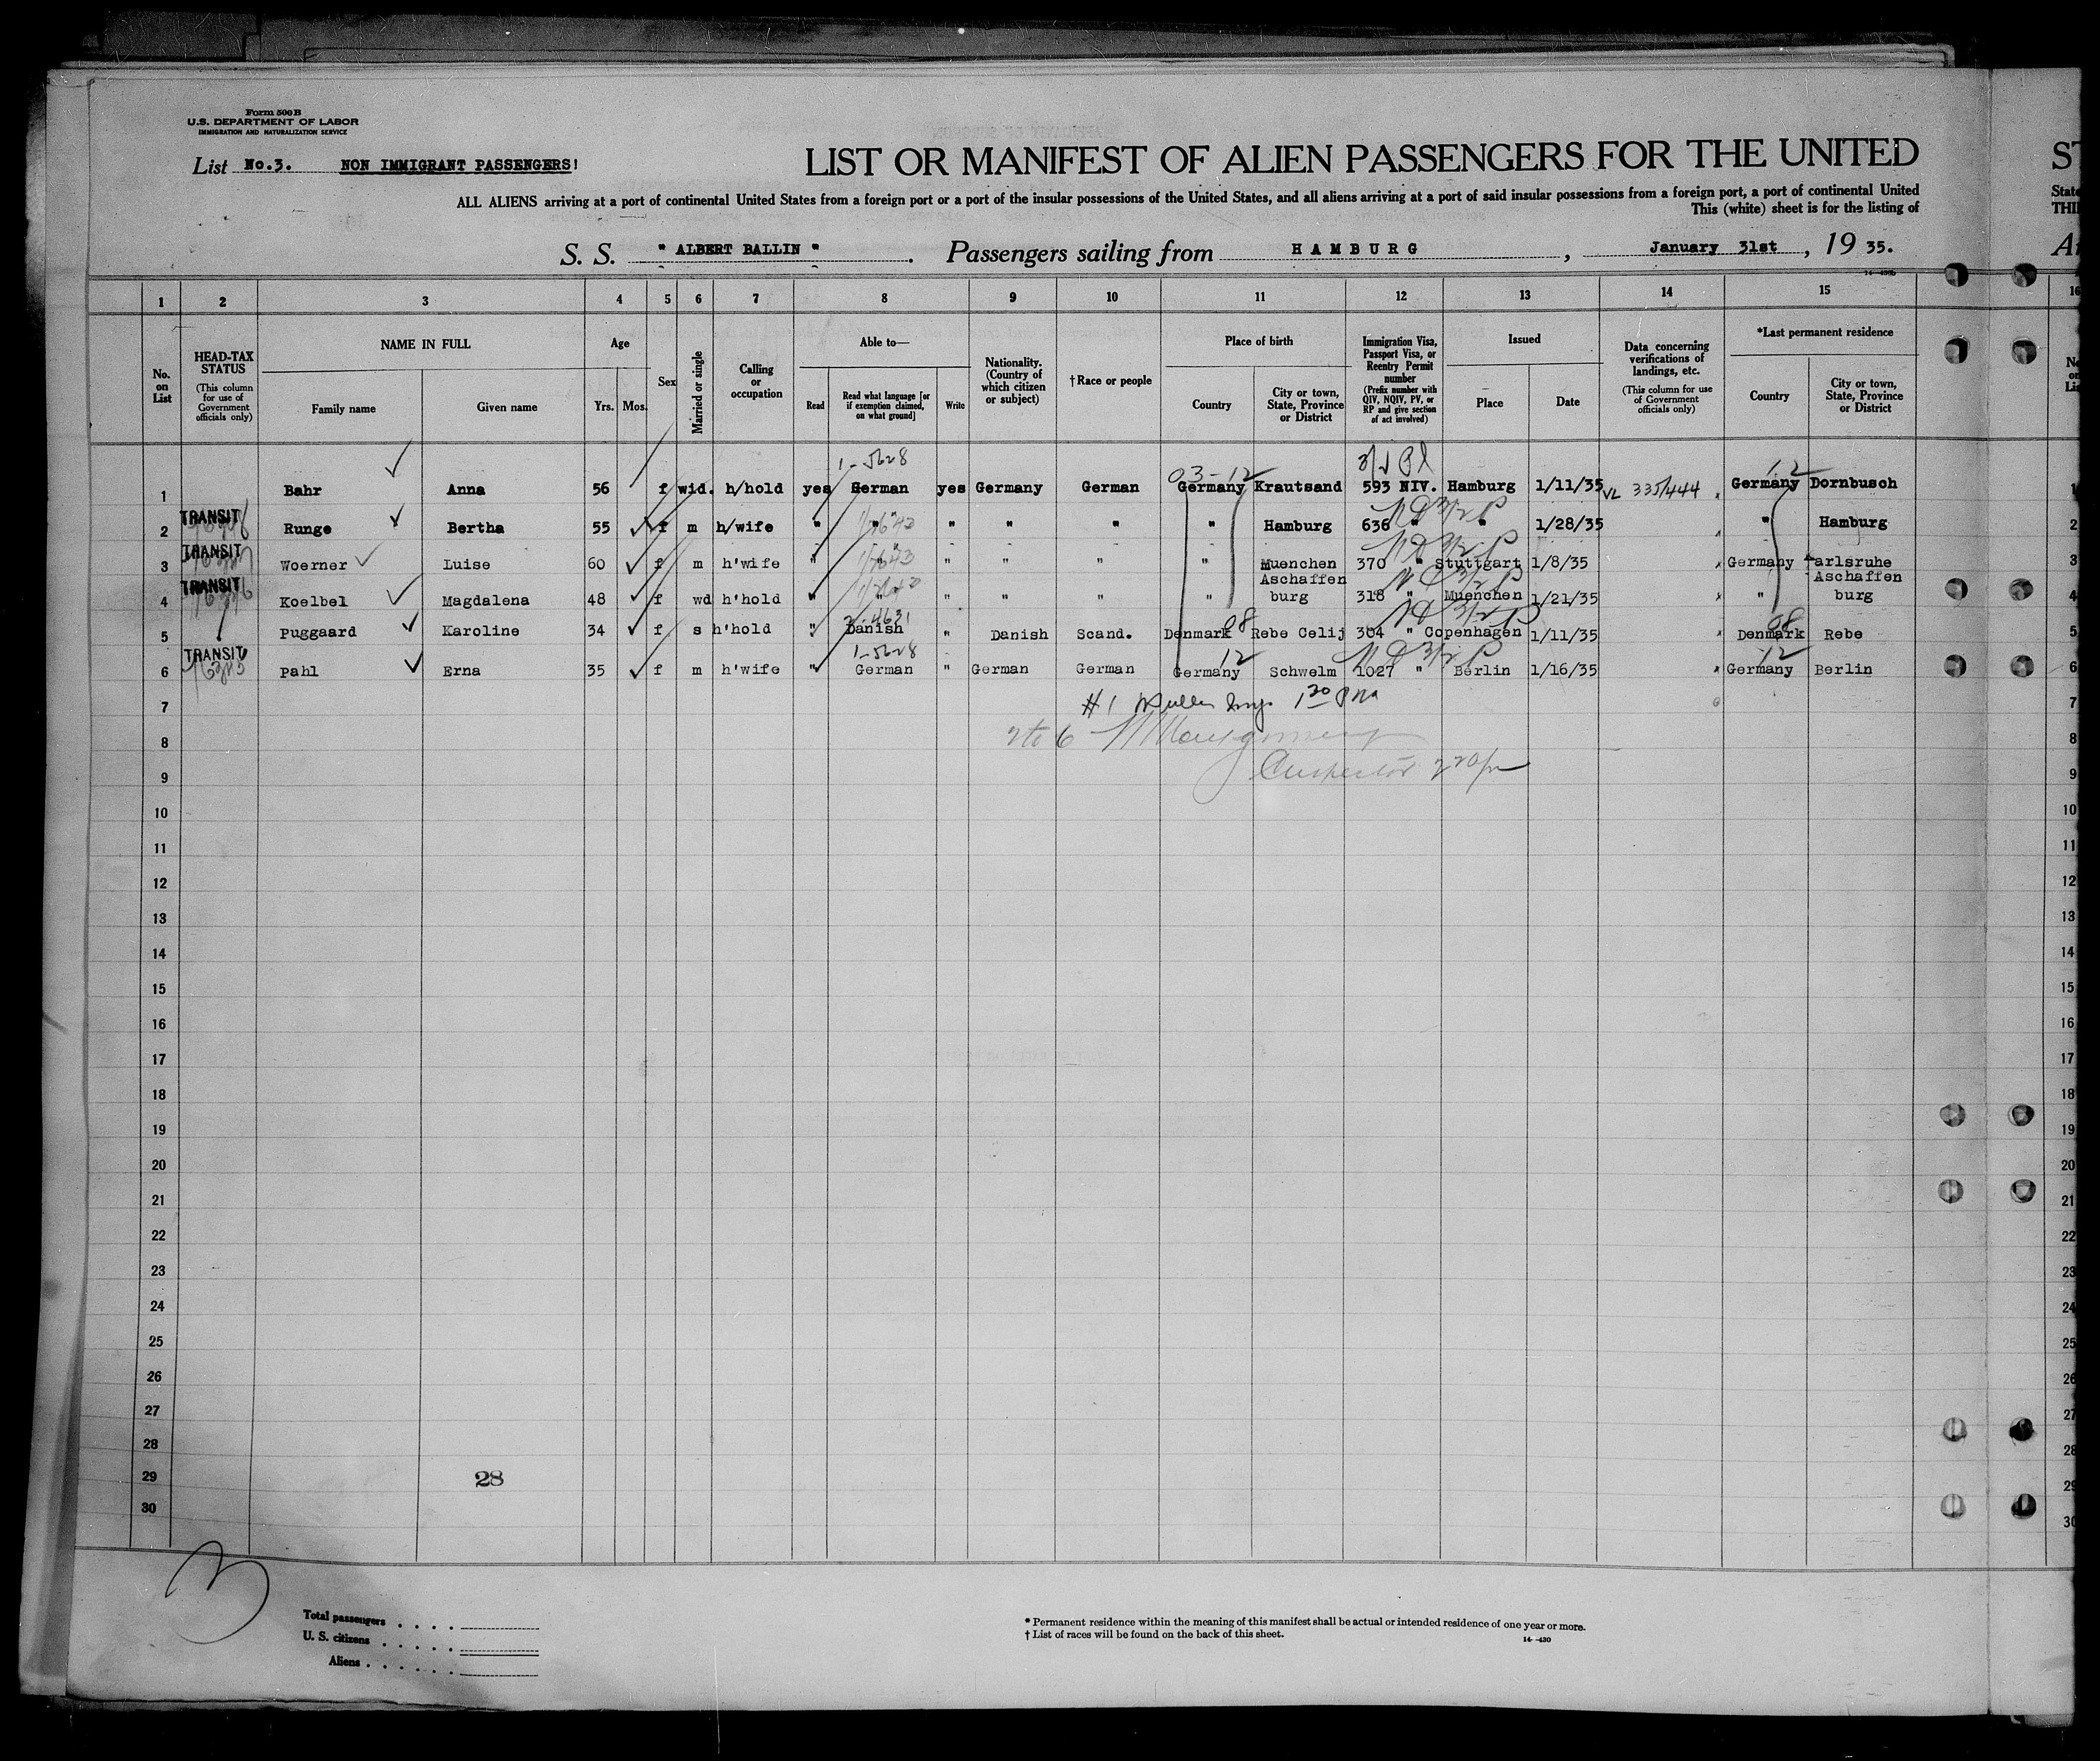 Form 500 B
U.S. DEPARTMENT OF LABOR
IMMIGRATION AND NATURALIZATION SERVICE
List No.3. NON IMMIGRANT PASSENGERS!
LIST OR MANIFEST OF ALIEN PASSENGERS FOR THE UNITED
ST
ALL ALIENS arriving at a port of continental United States from a foreign port or a port of the insular possessions of the United States, and all aliens arriving at a port of said insular possessions from a foreign port, a port of continental United
State
This (white) sheet is for the listing of
THI
S. S. " ALBERT BALLIN ". Passengers sailing from HAMBURG, January 31st, 19 35.
1 2 3 4 5 6 7 8 9 10 11 12 13 14 15 16
No. on List
HEAD-TAX STATUS (This column for use of Government officials only)
NAME IN FULL Family name Given name
Age Yrs. Mos.
Sex
Married or single
Calling or occupation
Able to— Read Read what language [or if exemption claimed, on what ground] Write
Nationality. (Country of which citizen or subject)
†Race or people
Place of birth Country City or town, State, Province or District
Immigration Visa, Passport Visa, or Reentry Permit number (Prefix number with QIV, NQIV, PV, or RP and give section of act involved)
Issued Place Date
Data concerning verifications of landings, etc. (This column for use of Government officials only)
*Last permanent residence Country City or town, State, Province or District
1-5628 03-12 12
1 Bahr Anna 56 f wid. h/hold yes German yes Germany German Germany Krautsand 593 NIV. Hamburg 1/11/35 VL 335/444 Germany Dornbusch 1
2 TRANSIT Runge Bertha 55 f m h/wife " " " " " " Hamburg 636 " " 1/28/35 " Hamburg 2
3 TRANSIT Woerner Luise 60 f m h'wife " " " " " " Muenchen 370 " Stuttgart 1/8/35 Germany Karlsruhe 3
Aschaffen Aschaffen
4 TRANSIT Koelbel Magdalena 48 f wd h'hold " " " " " " burg 318 " Muenchen 1/21/35 " burg 4
2-4631 08 08
5 Puggaard Karoline 34 f s h'hold " Danish " Danish Scand. Denmark Rebe Celij 304 " Copenhagen 1/11/35 Denmark Rebe 5
1-5628 12 12
6 TRANSIT Pahl Erna 35 f m h'wife " German " German German Germany Schwelm 1027 " Berlin 1/16/35 Germany Berlin 6
7 #1 Insp. 1 30 PM 7
8 2 to 6 Montgomery 8
9 Inspector 2 20 pm 9
10 10
11 11
12 12
13 13
14 14
15 15
16 16
17 17
18 18
19 19
20 20
21 21
22 22
23 23
24 24
25 25
26 26
27 27
28 28
29 28 29
30 30
3
Total passengers
U. S. citizens
Aliens
* Permanent residence within the meaning of this manifest shall be actual or intended residence of one year or more.
† List of races will be found on the back of this sheet. 14-430